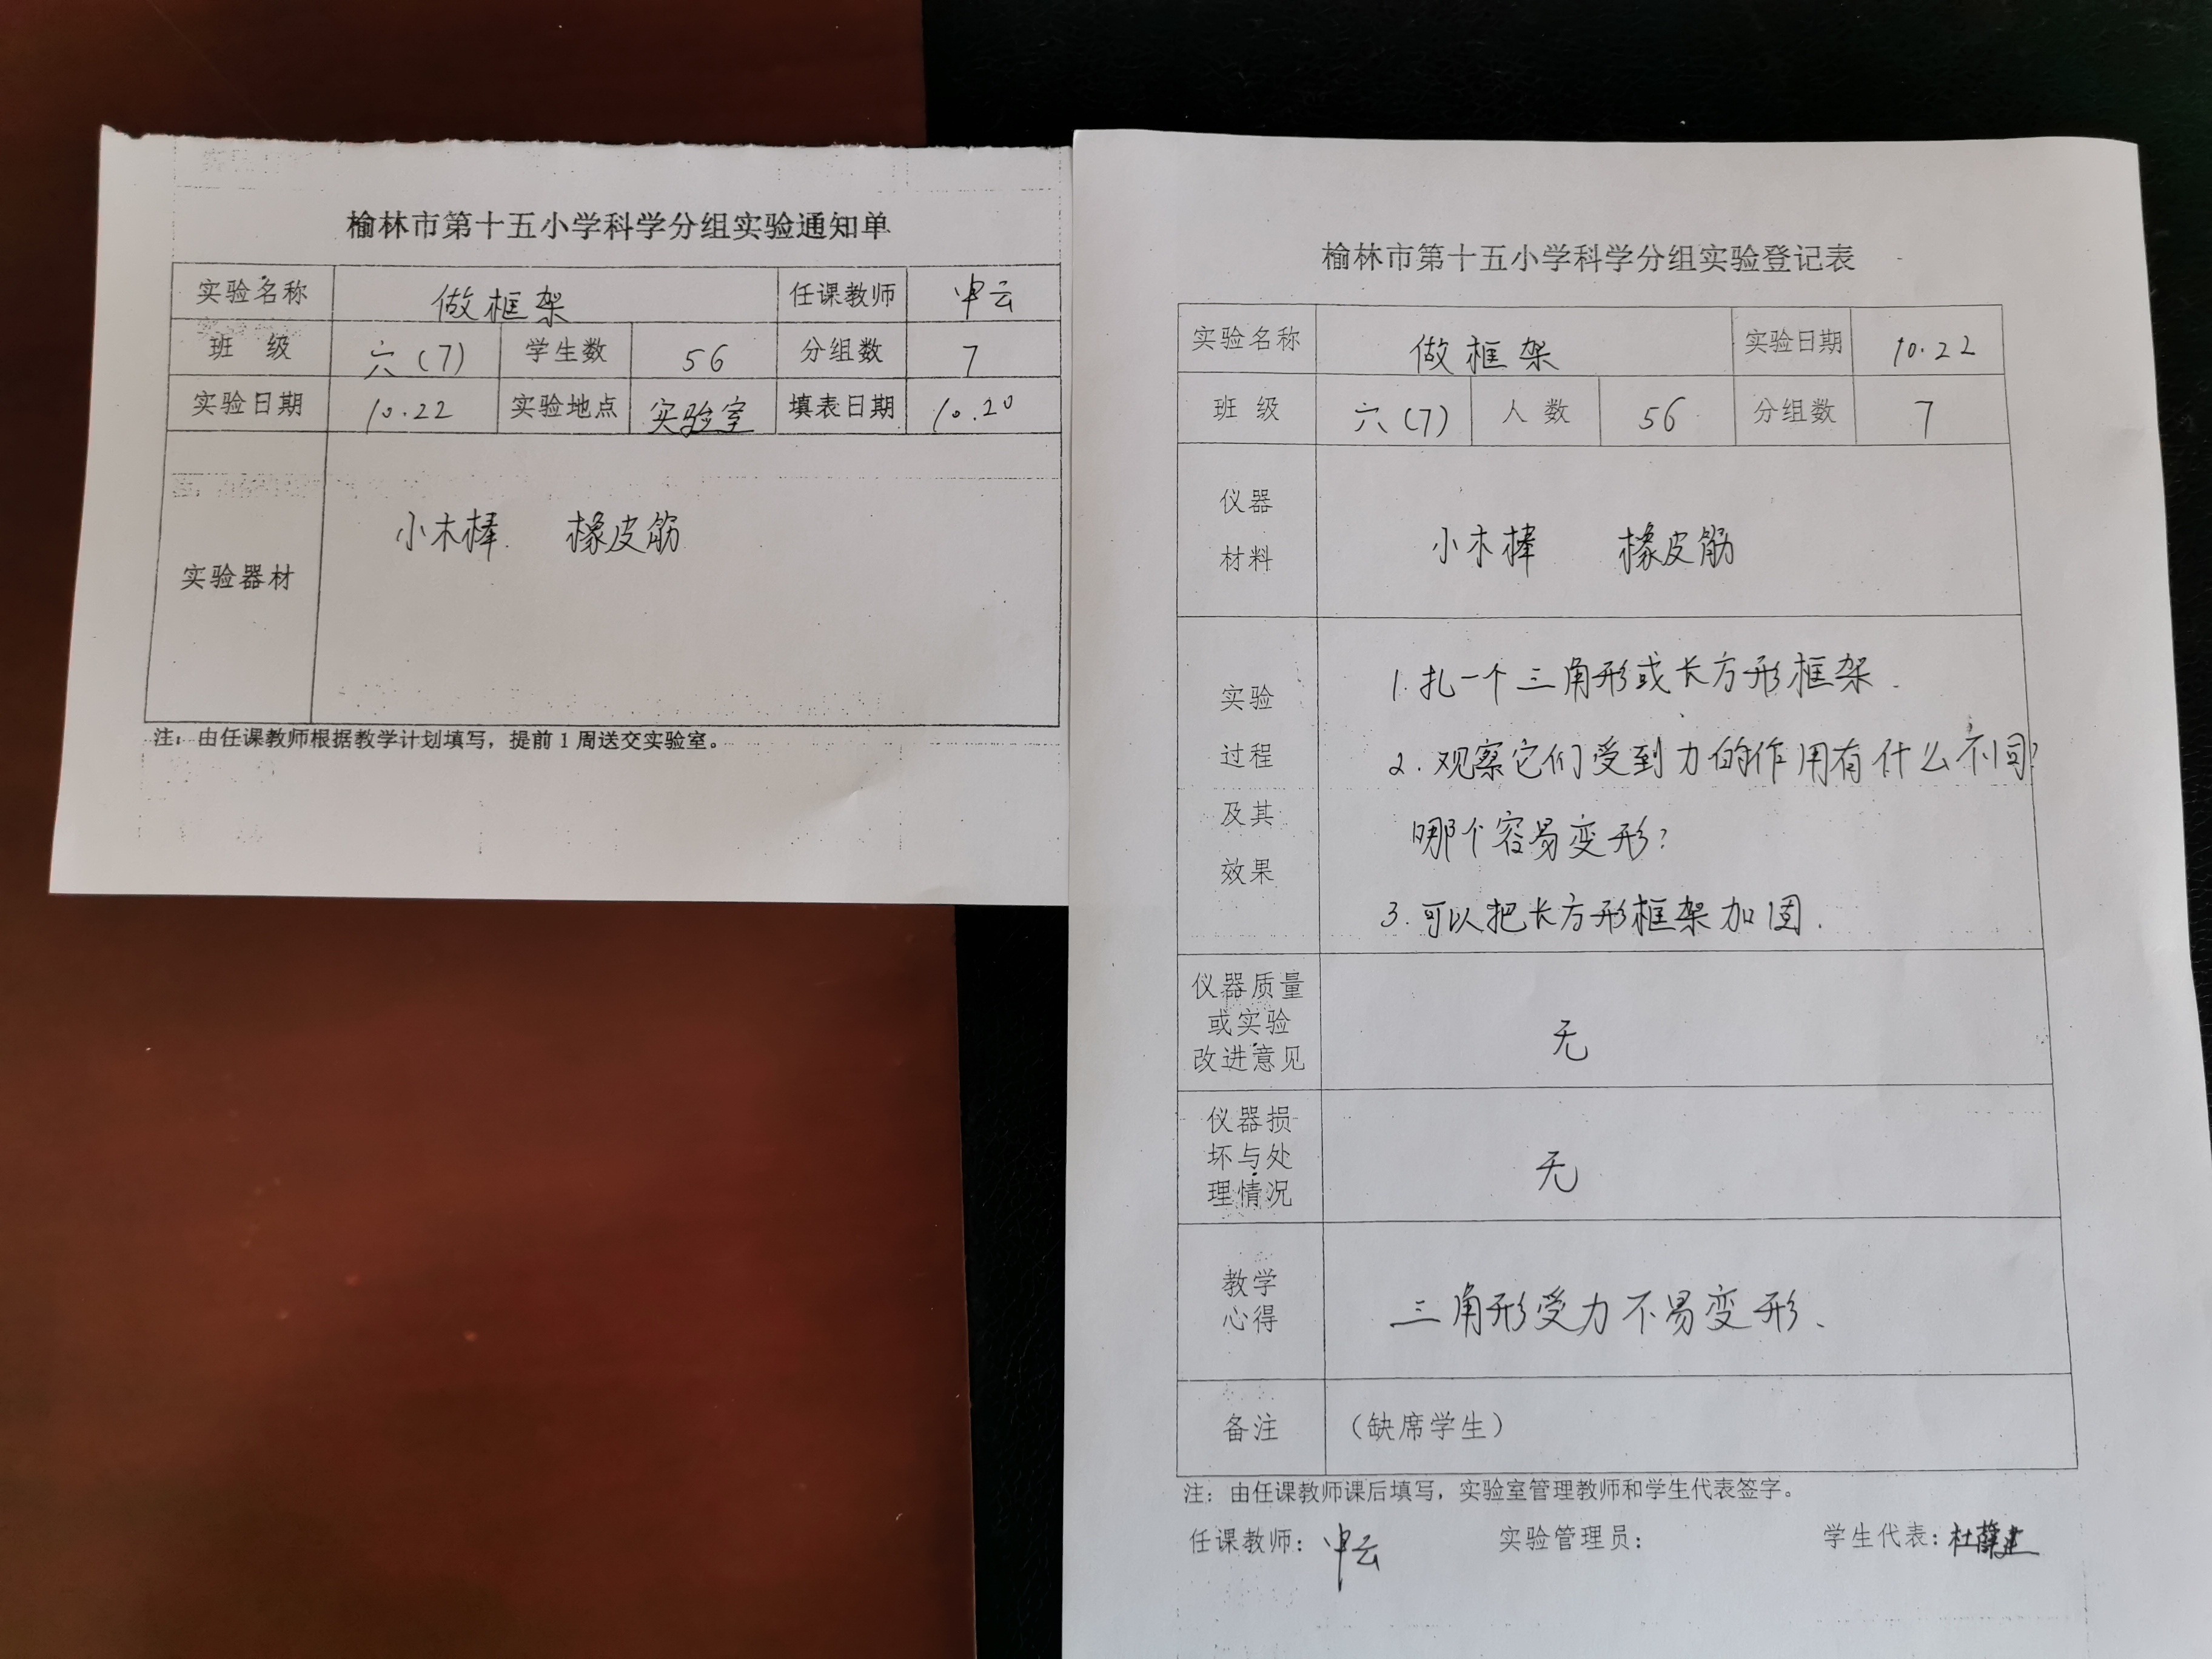 榆林市第十五小学科学分组实验通知单
实验名称 做框架 任课教师 申云
班 级 六(7) 学生数 56 分组数 7
实验日期 10.22 实验地点 实验室 填表日期 10.20
实验器材 小木棒. 橡皮筋
注：由任课教师根据教学计划填写，提前1周送交实验室。
榆林市第十五小学科学分组实验登记表
实验名称 做框架 实验日期 10.22
班 级 六(7) 人 数 56 分组数 7
仪器
材料
小木棒 橡皮筋
实验
过程
及其
效果
1.扎一个三角形或长方形框架.
2.观察它们受到力的作用有什么不同?
哪个容易变形?
3.可以把长方形框架加固.
仪器质量
或实验
改进意见
无
仪器损
坏与处
理情况
无
教学
心得
三角形受力不易变形、
备注 （缺席学生）
注：由任课教师课后填写，实验室管理教师和学生代表签字。
任课教师：申云 实验管理员： 学生代表：杜